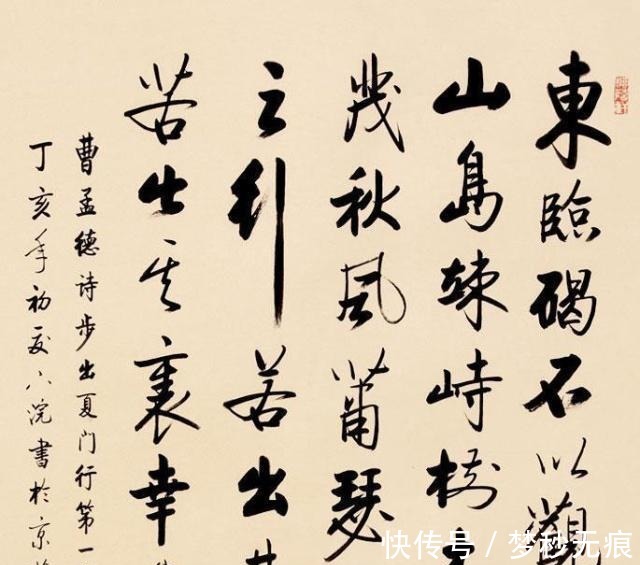 東臨碣石以觀
山島竦峙樹
茂秋風蕭瑟
之行若出其
若出其裏幸
曹孟德诗步出夏门行第一
丁亥年初夏八浣書於京
快传号 / 梦秒无痕